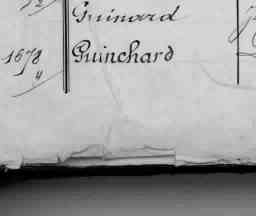 Guinard
1678 Guinchard
4